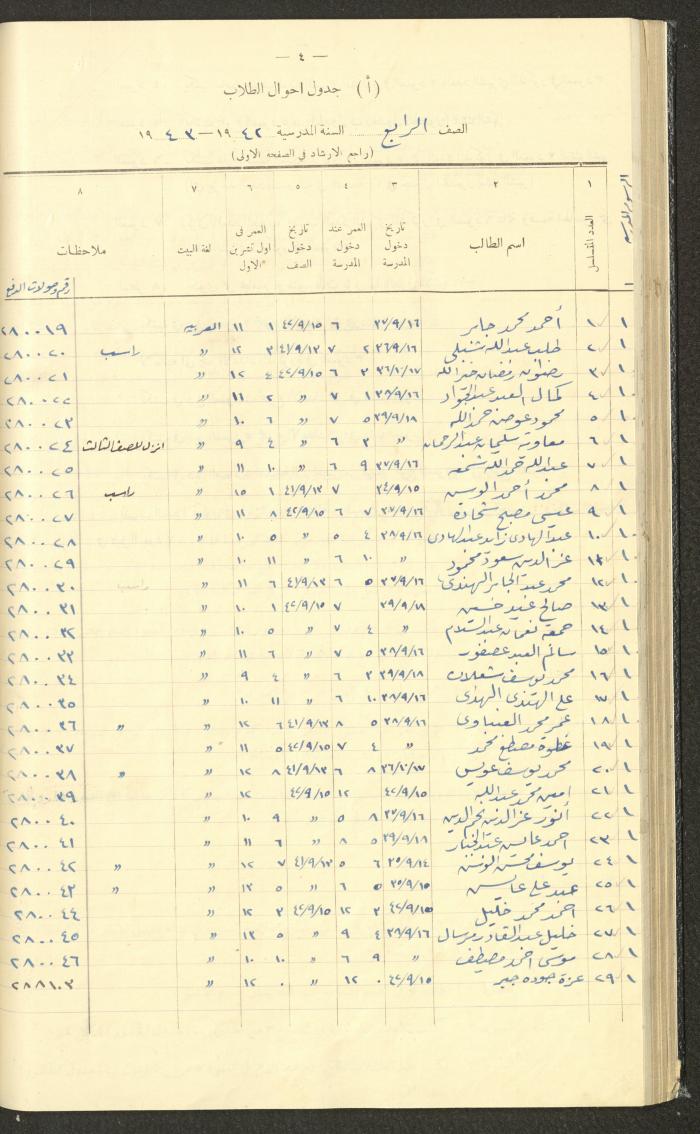 — ٤ —
(أ) جدول احوال الطلاب
الصف الرابع السنة المدرسية ١٩٤٢ — ١٩٤٣
(راجع الارشاد في الصفحة الاولى)
١ ٢ ٣ ٤ ٥ ٦ ٧ ٨
الرسوم المدرسية العدد المتسلسل اسم الطالب تاريخ دخول المدرسة العمر عند دخول المدرسة تاريخ دخول الصف العمر في اول تشرين الاول* لغة البيت ملاحظات
رقم وصولات الدفع
١ ١ أحمد محمد جابر ٣٧/٩/١٦ ٦ ٤٢/٩/١٥ ١ ١١ العربية ٢٨٠٠١٩
١ ٢ عبدالله ٣٦/٩/١٦ ٢ ٧ ٤١/٩/١٣ ٣ ١٢ " راسب ٢٨٠٠٢٠
١ ٣ رضوان رمضان خيرالله ٣٦/١٠/١٧ ٣ ٦ ٤٢/٩/١٥ ٤ ١٢ " ٢٨٠٠٢١
١ ٤ كمال العبد عبدالجواد ٣٨/٩/١٦ ١ ٧ " ٢ ١١ " ٢٨٠٠٢٢
١ ٥ محمود عوض حمدالله ٣٩/٩/١٨ ٥ ٧ " ٦ ١٠ " ٢٨٠٠٢٣
١ ٦ معاوية سليمان عبدالرحمان " ٣ ٦ " ٤ ٩ " انزل للصف الثالث ٢٨٠٠٢٤
١ ٧ عبدالله حمدالله ٣٧/٩/١٦ ٩ ٦ " ١٠ ١١ " ٢٨٠٠٢٥
١ ٨ محمد أحمد ٣٤/٩/١٥ ٧ ٤١/٩/١٣ ١ ١٥ " راسب ٢٨٠٠٢٦
١ ٩ عيسى مصبح شحادة ٣٧/٩/١٦ ٧ ٦ ٤٢/٩/١٥ ٨ ١١ " ٢٨٠٠٢٧
١ ١٠ عبدالهادي زايد عبدالهادي ٣٨/٩/١٦ ٤ ٥ " ٥ ١٠ " ٢٨٠٠٢٨
١ ١١ عزالدين سعود محمود " ١٠ ٦ " ١١ ١٠ " ٢٨٠٠٢٩
١ ١٢ محمد عبدالجابر الهندي ٣٧/٩/١٦ ٥ ٦ ٤١/٩/١٣ ٦ ١١ " راسب ٢٨٠٠٣٠
١ ١٣ صالح عبد حسن ٣٩/٩/١٨ ٧ ٤٢/٩/١٥ ١ ١٠ " ٢٨٠٠٣١
١ ١٤ جمعة نعمان عبدالسلام " ٤ ٧ " ٥ ١٠ " ٢٨٠٠٣٢
١ ١٥ سالم العبد عصفور ٣٨/٩/١٦ ٥ ٧ " ٦ ١١ " ٢٨٠٠٣٣
١ ١٦ محمد يوسف شعلان ٣٩/٩/١٨ ٣ ٦ " ٤ ٩ " ٢٨٠٠٣٤
١ ١٧ علي الهندي ٣٨/٩/١٦ ١٠ ٦ " ١١ ١٠ " ٢٨٠٠٣٥
١ ١٨ عمر محمد ٣٨/٩/١٦ ٥ ٨ ٤١/٩/١٣ ٦ ١٢ " " ٢٨٠٠٣٦
١ ١٩ عطوة مصطفى محمد " ٤ ٧ ٤٢/٩/١٥ ٥ ١١ " ٢٨٠٠٣٧
١ ٢٠ محمد يوسف عويس ٣٦/١٠/١٧ ٨ ٦ ٤١/٩/١٣ ٨ ١٢ " " ٢٨٠٠٣٨
١ ٢١ امين محمد عبدالله ٤٢/٩/١٥ ١٢ ٤٢/٩/١٥ ١٢ " ٢٨٠٠٣٩
١ ٢٢ أنور عزالدين نجم الدين ٣٧/٩/١٦ ٨ ٥ " ٩ ١٠ " ٢٨٠٠٤٠
١ ٢٣ احمد عباس عبدالجبار ٣٩/٩/١٨ ٥ ٨ " ٦ ١١ " ٢٨٠٠٤١
١ ٢٤ يوسف محسن ٣٥/٩/١٤ ٦ ٥ ٤١/٩/١٣ ٧ ١٢ " " ٢٨٠٠٤٢
١ ٢٥ عبد علي عباس ٣٥/٩/١٥ ٥ ٦ " ٥ ١٣ " " ٢٨٠٠٤٣
١ ٢٦ احمد محمد خليل ٤٢/٩/١٥ ٣ ١٢ ٤٢/٩/١٥ ٣ ١٢ " ٢٨٠٠٤٤
١ ٢٧ خليل عبدالقادر مرسال ٣٩/٩/١٦ ٤ ٩ " ٥ ١٣ " ٢٨٠٠٤٥
١ ٢٨ موسى احمد مصطفى " ٩ ٦ " ١٠ ١٠ " ٢٨٠٠٤٦
١ ٢٩ عزة جوده جبر ٤٢/٩/١٥ ٠ ١٢ " ٠ ١٢ " ٢٨٨١٠٣